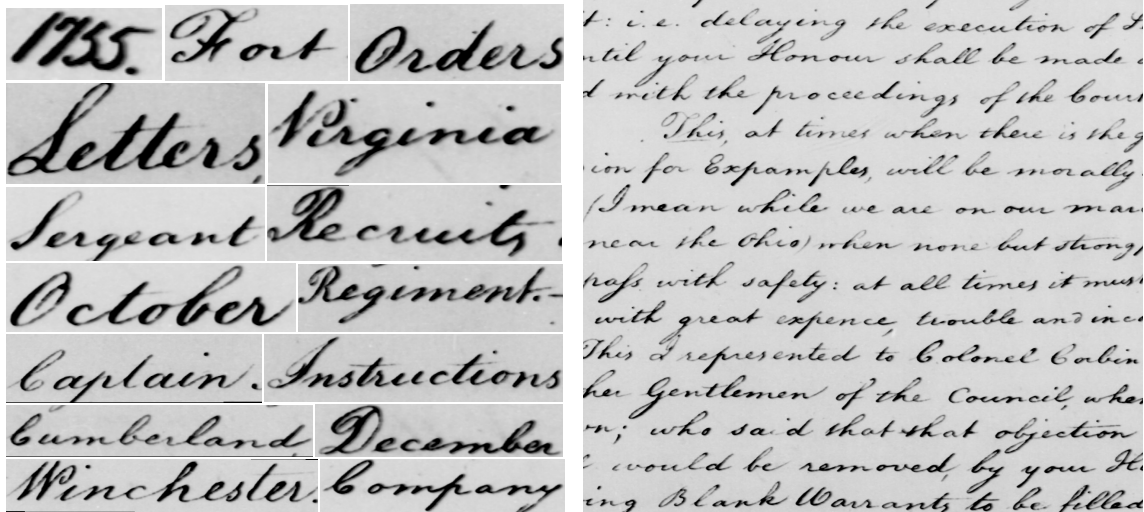 1755. Fort Orders
Letters, Virginia
Sergeant Recruits.
October Regiment.-
Captain. Instructions
Cumberland, December
Winchester. Company
t: i.e. delaying the execution of
ntil your Honour shall be made
d with the proceedings of the Cour
This, at times when there is the g
ion for Expamples, will be morally
(I mean while we are on our mar
near the Ohio) when none but strong
pass with safety: at all times it mus
with great expence, trouble and inc
This I represented to Colonel Corbin
her Gentlemen of the Council, when
n; who said that that objection
would be removed, by your H
ing Blank Warrants to be filled